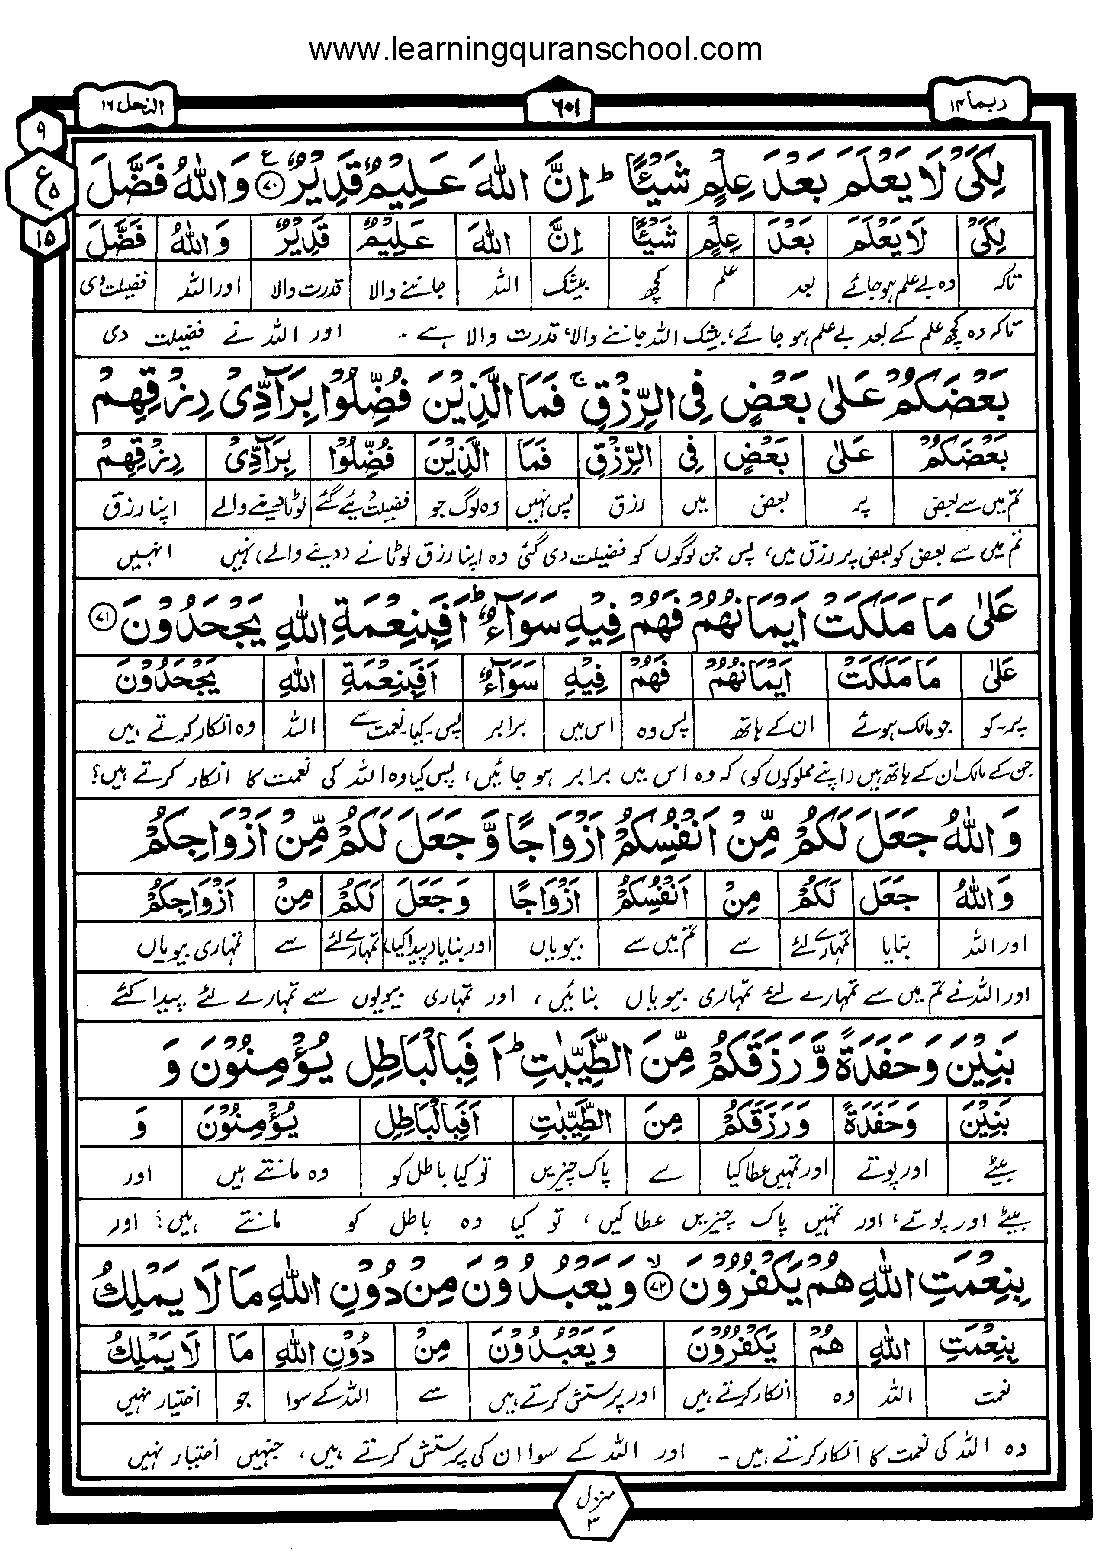 www.learningquranschool.com
ربما ١٤
٦٠١
النحل ١٦
٩
ع
٥
١٥
لِكَیۡ لَا یَعۡلَمَ بَعۡدَ عِلۡمٍ شَیۡـًٔا ؕ اِنَّ اللّٰهَ عَلِیۡمٌ قَدِیۡرٌ ﴿۷۰﴾ وَاللّٰهُ فَضَّلَ
لِكَیۡ لَا یَعۡلَمَ بَعۡدَ عِلۡمٍ شَیۡـًٔا اِنَّ اللّٰهَ عَلِیۡمٌ قَدِیۡرٌ وَاللّٰهُ فَضَّلَ
تاکہ وہ بے علم ہو جائے بعد علم کچھ بیشک اللہ جاننے والا قدرت والا اور اللہ فضیلت دی
تاکہ وہ کچھ علم کے بعد بے علم ہو جائے، بیشک اللہ جاننے والا، قدرت والا ہے ۔ اور اللہ نے فضیلت دی
بَعۡضَكُمۡ عَلٰی بَعۡضٍ فِی الرِّزۡقِ ۚ فَمَا الَّذِیۡنَ فُضِّلُوۡا بِرَآدِّیۡ رِزۡقِهِمۡ
بَعۡضَكُمۡ عَلٰی بَعۡضٍ فِی الرِّزۡقِ فَمَا الَّذِیۡنَ فُضِّلُوۡا بِرَآدِّیۡ رِزۡقِهِمۡ
تم میں سے بعض پر بعض میں رزق پس نہیں وہ لوگ جو فضیلت دیئے گئے لوٹا دینے والے اپنا رزق
تم میں سے بعض کو بعض پر رزق میں، پس جن لوگوں کو فضیلت دی گئی وہ اپنا رزق لوٹانے (دینے والے) نہیں انہیں
عَلٰی مَا مَلَكَتۡ اَیۡمَانُهُمۡ فَهُمۡ فِیۡهِ سَوَآءٌ ؕ اَفَبِنِعۡمَةِ اللّٰهِ یَجۡحَدُوۡنَ ﴿۷۱﴾
عَلٰی مَا مَلَكَتۡ اَیۡمَانُهُمۡ فَهُمۡ فِیۡهِ سَوَآءٌ اَفَبِنِعۡمَةِ اللّٰهِ یَجۡحَدُوۡنَ
پر ۔ کو جو مالک ہوئے ان کے ہاتھ پس وہ اس میں برابر پس ۔ کیا نعمت سے اللہ وہ انکار کرتے ہیں
جن کے مالک ان کے ہاتھ ہیں (اپنے مملوکوں کو) کہ وہ اس میں برابر ہو جائیں، پس کیا وہ اللہ کی نعمت کا انکار کرتے ہیں؟
وَاللّٰهُ جَعَلَ لَكُمۡ مِّنۡ اَنۡفُسِكُمۡ اَزۡوَاجًا وَّجَعَلَ لَكُمۡ مِّنۡ اَزۡوَاجِكُمۡ
وَاللّٰهُ جَعَلَ لَكُمۡ مِنۡ اَنۡفُسِكُمۡ اَزۡوَاجًا وَجَعَلَ لَكُمۡ مِنۡ اَزۡوَاجِكُمۡ
اور اللہ بنایا تمہارے لئے سے تم میں سے بیویاں اور بنایا (پیدا کیا) تمہارے لئے سے تمہاری بیویاں
اور اللہ نے تم میں سے تمہارے لئے تمہاری بیویاں بنائیں، اور تمہاری بیویوں سے تمہارے لئے پیدا کئے
بَنِیۡنَ وَحَفَدَةً وَّرَزَقَكُمۡ مِّنَ الطَّیِّبٰتِ ؕ اَفَبِالۡبَاطِلِ یُؤۡمِنُوۡنَ وَ
بَنِیۡنَ وَحَفَدَةً وَرَزَقَكُمۡ مِنَ الطَّیِّبٰتِ اَفَبِالۡبَاطِلِ یُؤۡمِنُوۡنَ وَ
بیٹے اور پوتے اور تمہیں عطا کیا سے پاک چیزیں تو کیا باطل کو وہ مانتے ہیں اور
بیٹے اور پوتے، اور تمہیں پاک چیزیں عطا کیں، تو کیا وہ باطل کو مانتے ہیں؟ اور
بِنِعۡمَتِ اللّٰهِ هُمۡ یَكۡفُرُوۡنَ ﴿۷۲﴾ۙ وَیَعۡبُدُوۡنَ مِنۡ دُوۡنِ اللّٰهِ مَا لَا یَمۡلِكُ
بِنِعۡمَتِ اللّٰهِ هُمۡ یَكۡفُرُوۡنَ وَیَعۡبُدُوۡنَ مِنۡ دُوۡنِ اللّٰهِ مَا لَا یَمۡلِكُ
نعمت اللہ وہ انکار کرتے ہیں اور پرستش کرتے ہیں سے اللہ کے سوا جو اختیار نہیں
وہ اللہ کی نعمت کا انکار کرتے ہیں ۔ اور اللہ کے سوا ان کی پرستش کرتے ہیں، جنہیں اختیار نہیں
منزل
٣